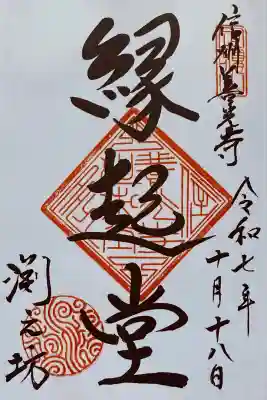 信州善光寺
令和七年十月十八日
縁起堂
渕之坊